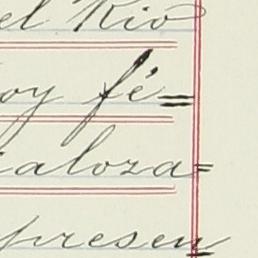 el Rio
oy fé=
ialoza=
presen